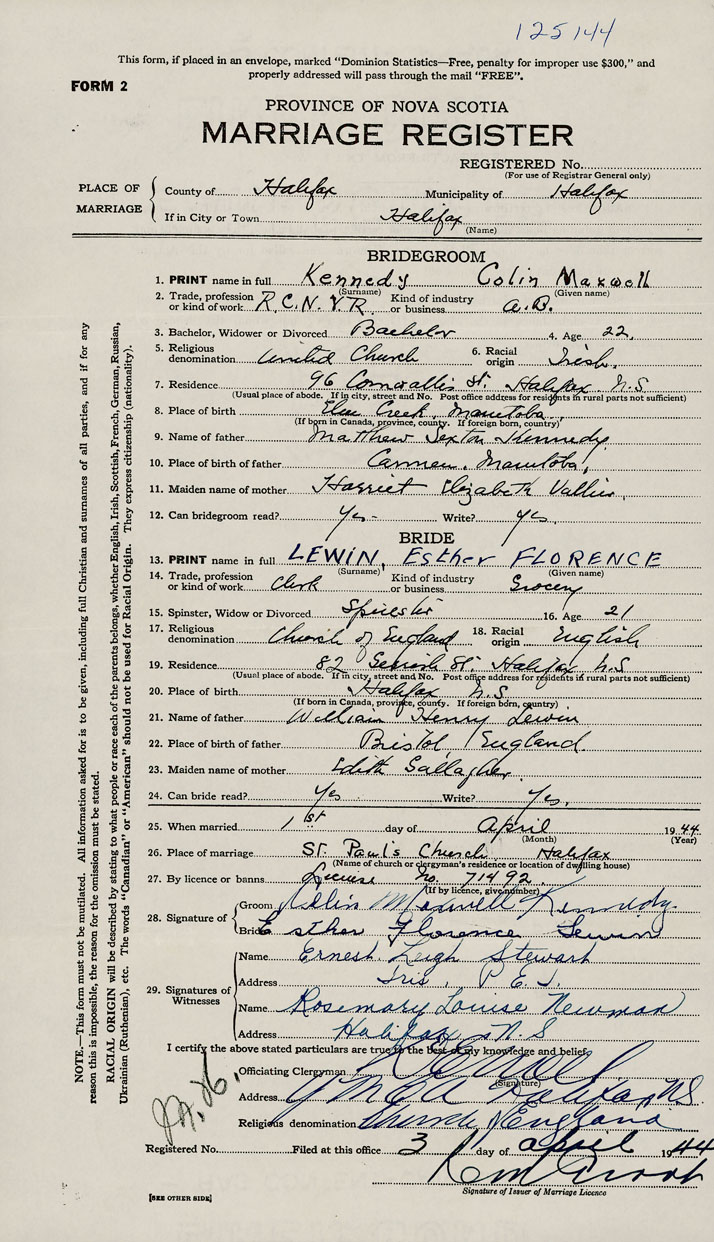 125144
This form, if placed in an envelope, marked "Dominion Statistics—Free, penalty for improper use $300," and
properly addressed will pass through the mail "FREE".
FORM 2
PROVINCE OF NOVA SCOTIA
MARRIAGE REGISTER
REGISTERED No.
(For use of Registrar General only)
PLACE OF MARRIAGE
County of Halifax Municipality of Halifax
If in City or Town Halifax
(Name)
BRIDEGROOM
1. PRINT name in full Kennedy Colin Maxwell
(Surname) (Given name)
2. Trade, profession or kind of work R.C.N.V.R. Kind of industry or business A.B.
3. Bachelor, Widower or Divorced Bachelor 4. Age 22.
5. Religious denomination United Church 6. Racial origin Irish.
7. Residence 96 Cornwallis St. Halifax N.S
(Usual place of abode. If in city, street and No. Post office address for residents in rural parts not sufficient)
8. Place of birth Elm Creek, Manitoba.
(If born in Canada, province, county. If foreign born, country)
9. Name of father Matthew Sexton Kennedy
10. Place of birth of father Carman, Manitoba,
11. Maiden name of mother Harriet Elizabeth
12. Can bridegroom read? Yes - Write? Yes,
BRIDE
13. PRINT name in full LEWIN, Esther FLORENCE
(Surname) (Given name)
14. Trade, profession or kind of work Clerk Kind of industry or business Grocery
15. Spinster, Widow or Divorced Spinster 16. Age 21
17. Religious denomination Church of England 18. Racial origin English
19. Residence 82 St. Halifax N.S
(Usual place of abode. If in city, street and No. Post office address for residents in rural parts not sufficient)
20. Place of birth Halifax N.S
(If born in Canada, province, county. If foreign born, country)
21. Name of father William Henry Lewin
22. Place of birth of father Bristol, England
23. Maiden name of mother Edith Gallagher.
24. Can bride read? Yes Write? Yes,
25. When married 1st day of April 1944
(Month) (Year)
26. Place of marriage St. Paul's Church, Halifax
(Name of church or clergyman's residence or location of dwelling house)
27. By licence or banns License No. 71492
(If by licence, give number)
28. Signature of
Groom Colin Maxwell Kennedy.
Bride Esther Florence Lewin
29. Signatures of Witnesses
Name Ernest Leigh Stewart
Address Iris, P.E.I.
Name Rosemary Louise Newman
Address Halifax N.S
I certify the above stated particulars are true to the best of my knowledge and belief,
Officiating Clergyman
(Signature)
Address Halifax, N.S.
Religious denomination Church of England
Registered No. Filed at this office 3 day of April 1944
Signature of Issuer of Marriage Licence
[SEE OTHER SIDE]
NOTE.—This form must not be mutilated. All information asked for is to be given, including full Christian and surnames of all parties, and if for any
reason this is impossible, the reason for the omission must be stated.
RACIAL ORIGIN will be described by stating to what people or race each of the parents belongs, whether English, Irish, Scottish, French, German, Russian,
Ukrainian (Ruthenian), etc. The words "Canadian" or "American" should not be used for Racial Origin. They express citizenship (nationality).